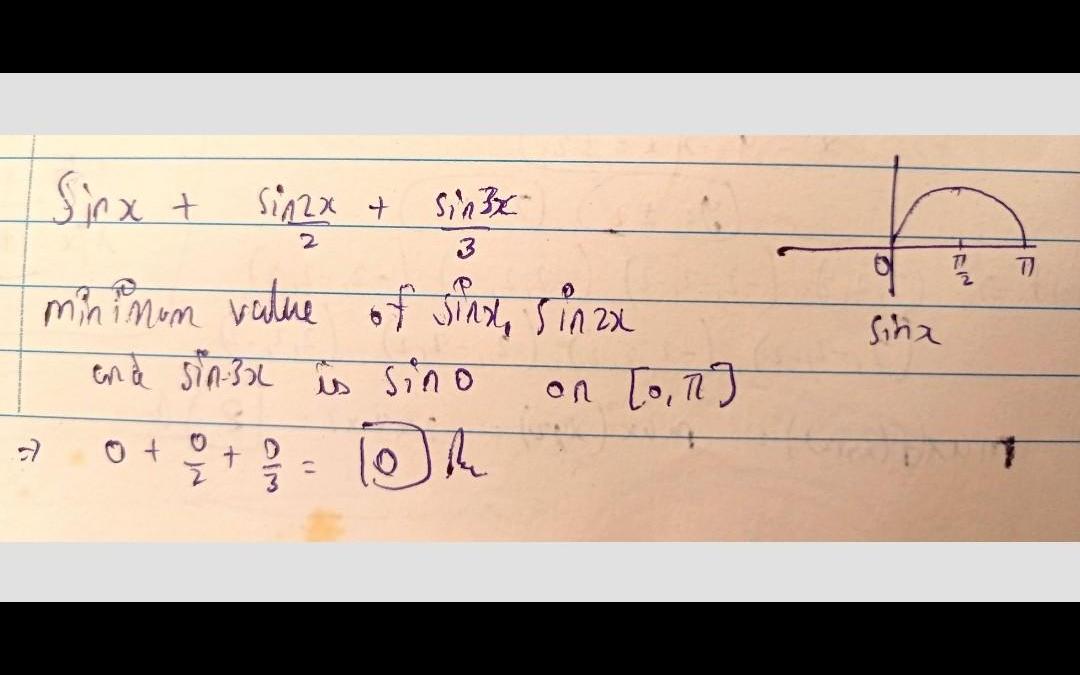 sinx + sin2x/2 + sin3x/3
minimum value of sinx, sin2x
and sin3x is sin0 on [0,π]
⇒ 0 + 0/2 + 0/3 = 0
0 π/2 π
sinx